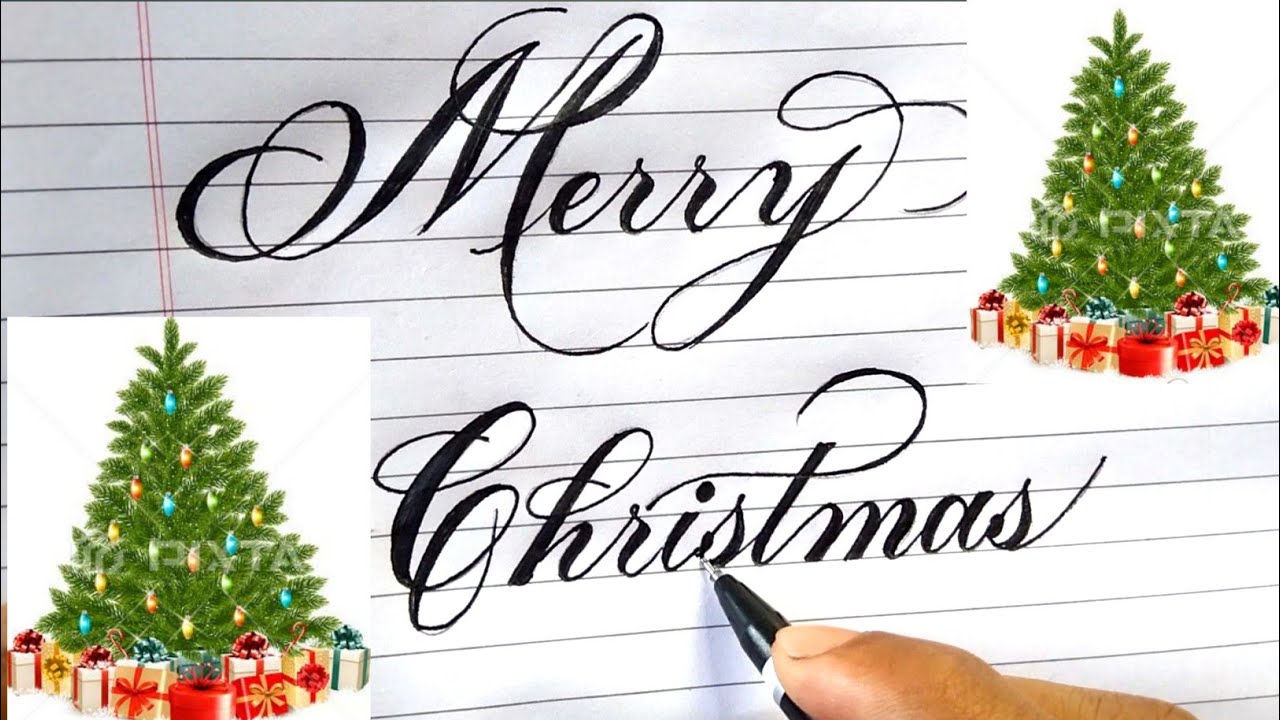 Merry
PIXTA
Christmas
PIXTA